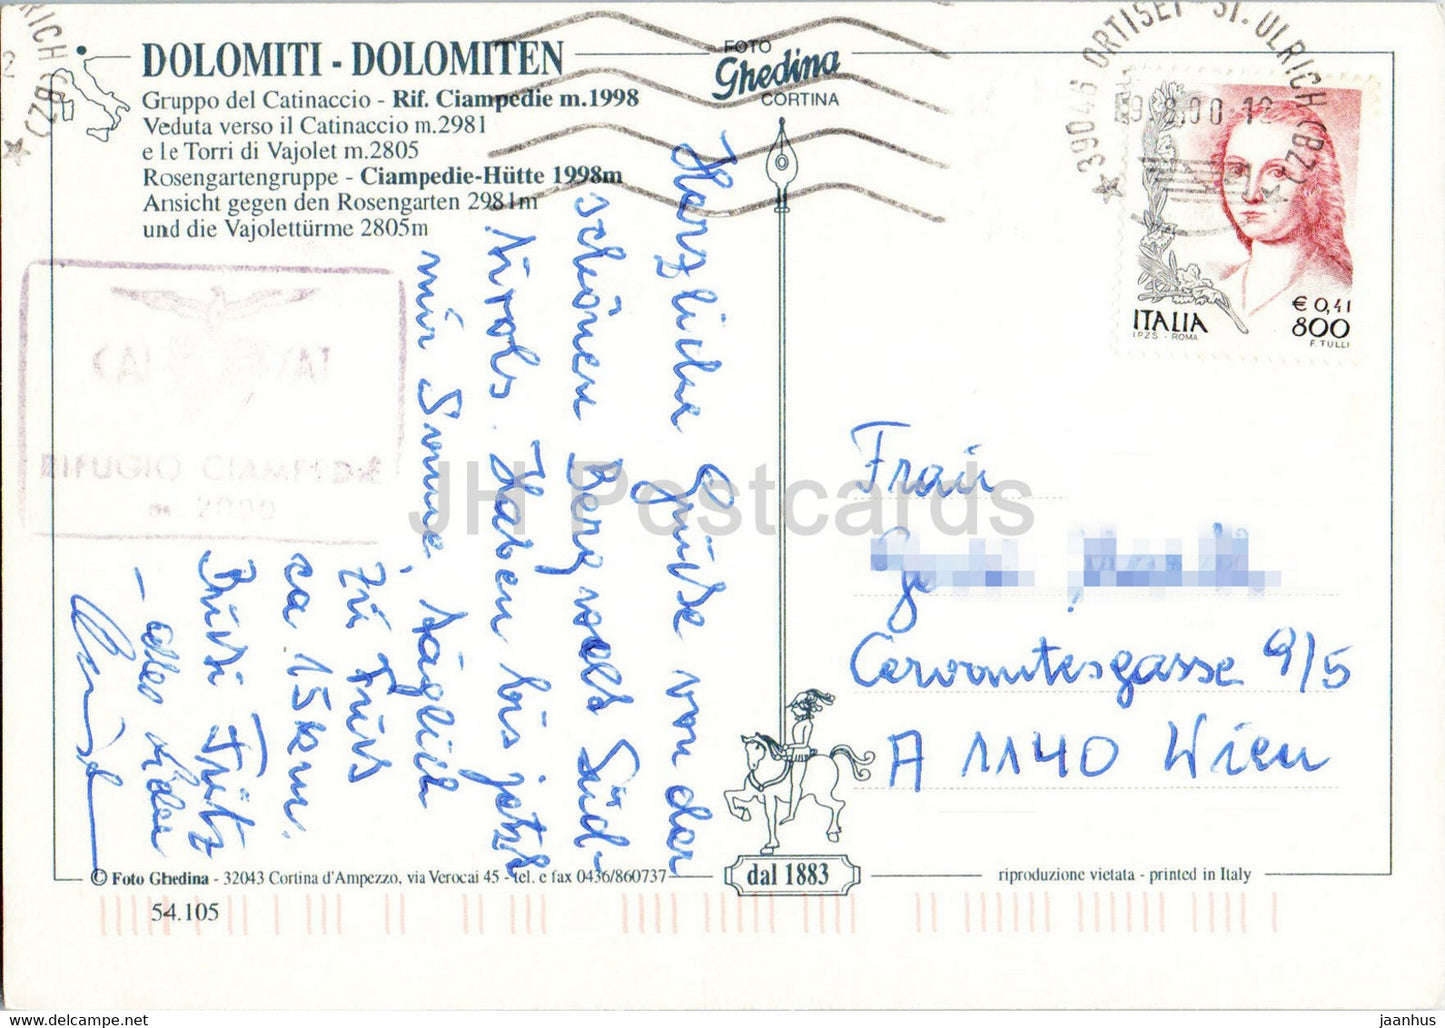 DOLOMITI - DOLOMITEN
Gruppo del Catinaccio - Rif. Ciampedie m.1998
Veduta verso il Catinaccio m.2981
e le Torri di Vajolet m.2805
Rosengartengruppe - Ciampedie-Hütte 1998m
Ansicht gegen den Rosengarten 2981m
und die Vajolettürme 2805m
FOTO
Ghedina
CORTINA
39046 ORTISEI ST. ULRICH (BZ)
RICH (BZ)
ITALIA
I.P.Z.S. - ROMA
€ 0,41
800
F. TULLI
CAI
RIFUGIO CIAMPEDIE
m 2000
Herzliche Grüße von der
schönen Bergwelt Süd-
tirols. Haben bis jetzt
nur Sonne, täglich
zu Fuß
ca 15 km.
Bussi Fritz
Frau
Cervantesgasse 9/5
A 1140 Wien
dal 1883
© Foto Ghedina - 32043 Cortina d'Ampezzo, via Verocai 45 - tel. e fax 0436/860737
riproduzione vietata - printed in Italy
54.105
JH Postcards
jaanhus.com/postcards